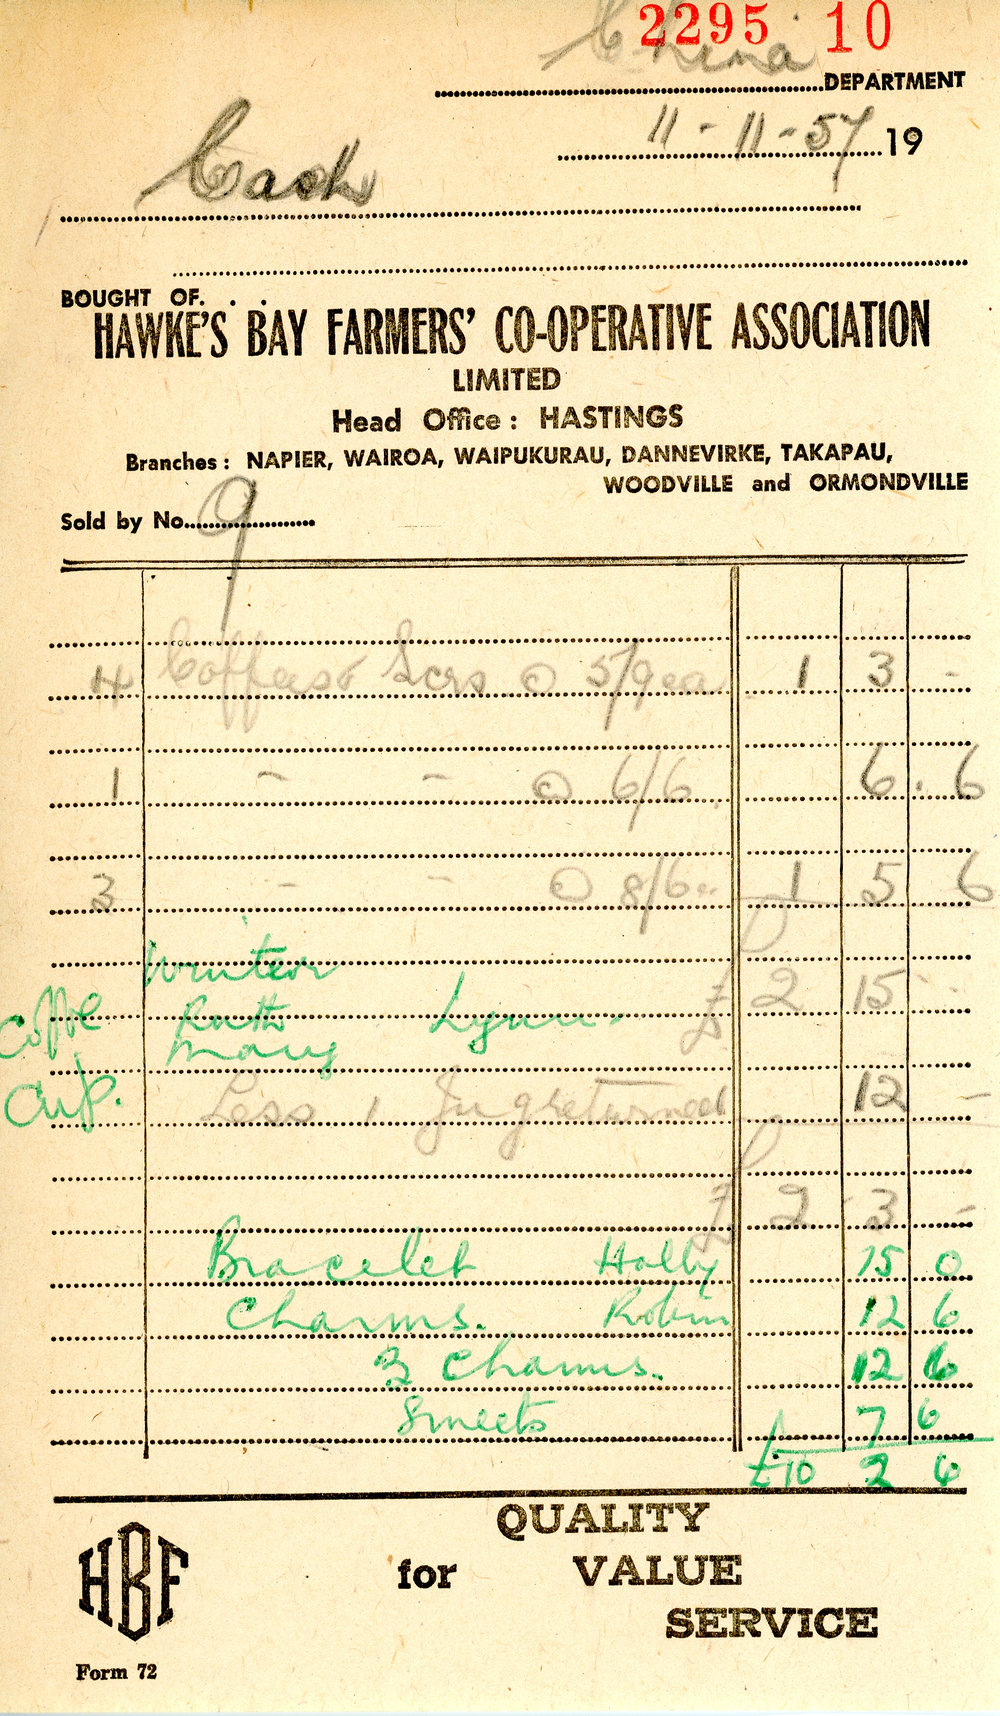 2295 10
China DEPARTMENT
11-11-57 19
Cash
BOUGHT OF. . .
HAWKE'S BAY FARMERS' CO-OPERATIVE ASSOCIATION
LIMITED
Head Office : HASTINGS
Branches : NAPIER, WAIROA, WAIPUKURAU, DANNEVIRKE, TAKAPAU,
WOODVILLE and ORMONDVILLE
Sold by No. 9
4 Coffees & Scrs @ 5/9 ea 1 3 -
1 - - @ 6/6 6. 6
3 - - @ 8/6 1 5 6
£2 15 -
Coffee Ruth Lynn.
Mary
Cup.
Less 1 Jug returned 12 -
£ 2 3 -
Bracelet Holly 15 0
Charms. Robin 12 6
3 Charms. 12 6
Sweets 7 6
£10 2 6
HBF
QUALITY
for VALUE
SERVICE
Form 72